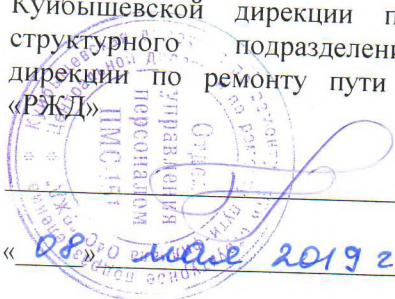 Куйбышевской дирекции п
структурного подразделени
дирекции по ремонту пути
«РЖД»
Отдел
управления
персоналом
ПМС 151
« 08 » мая 2019 г